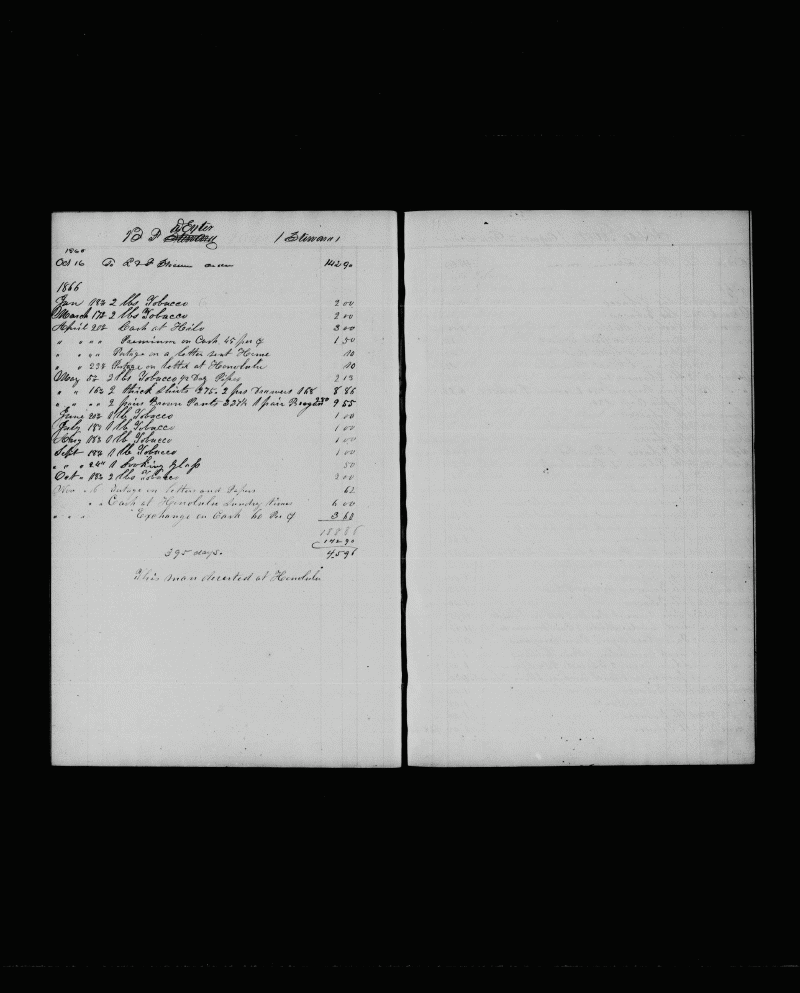 ( Steward )
Oct 16 To 142 90
1866
Jan 18th 2 lbs Tobacco 2 00
March 17th 2 lbs Tobacco 2 00
April 20th Cash at Hilo 3 00
" " " " Premium on Cash 45 per ct 1 50
" " " " Postage on a letter sent Home 10
" " 23d Postage on letter at Honolulu 10
May 5th 2 lbs Tobacco Pipes
" " 16th 2 thick Shirts 2 prs Drawers 8 86
" " " " 2 pairs Brown Pants 1 pair Brogans 9 55
June 20th 1 lb Tobacco 1 00
July 18th 1 lb Tobacco 1 00
Aug 18th 1 lb Tobacco 1 00
Sept 18th 1 lb Tobacco 1 00
" " 24th 1 Looking Glass 50
Oct 18th 2 lbs Tobacco 2 00
Nov Postage on letters and Papers 62
" " Cash at Honolulu Sundry times 6 00
" " " Exchange on Cash 60 Per ct 3 60
142 90
395 days.
This man deserted at Honolulu